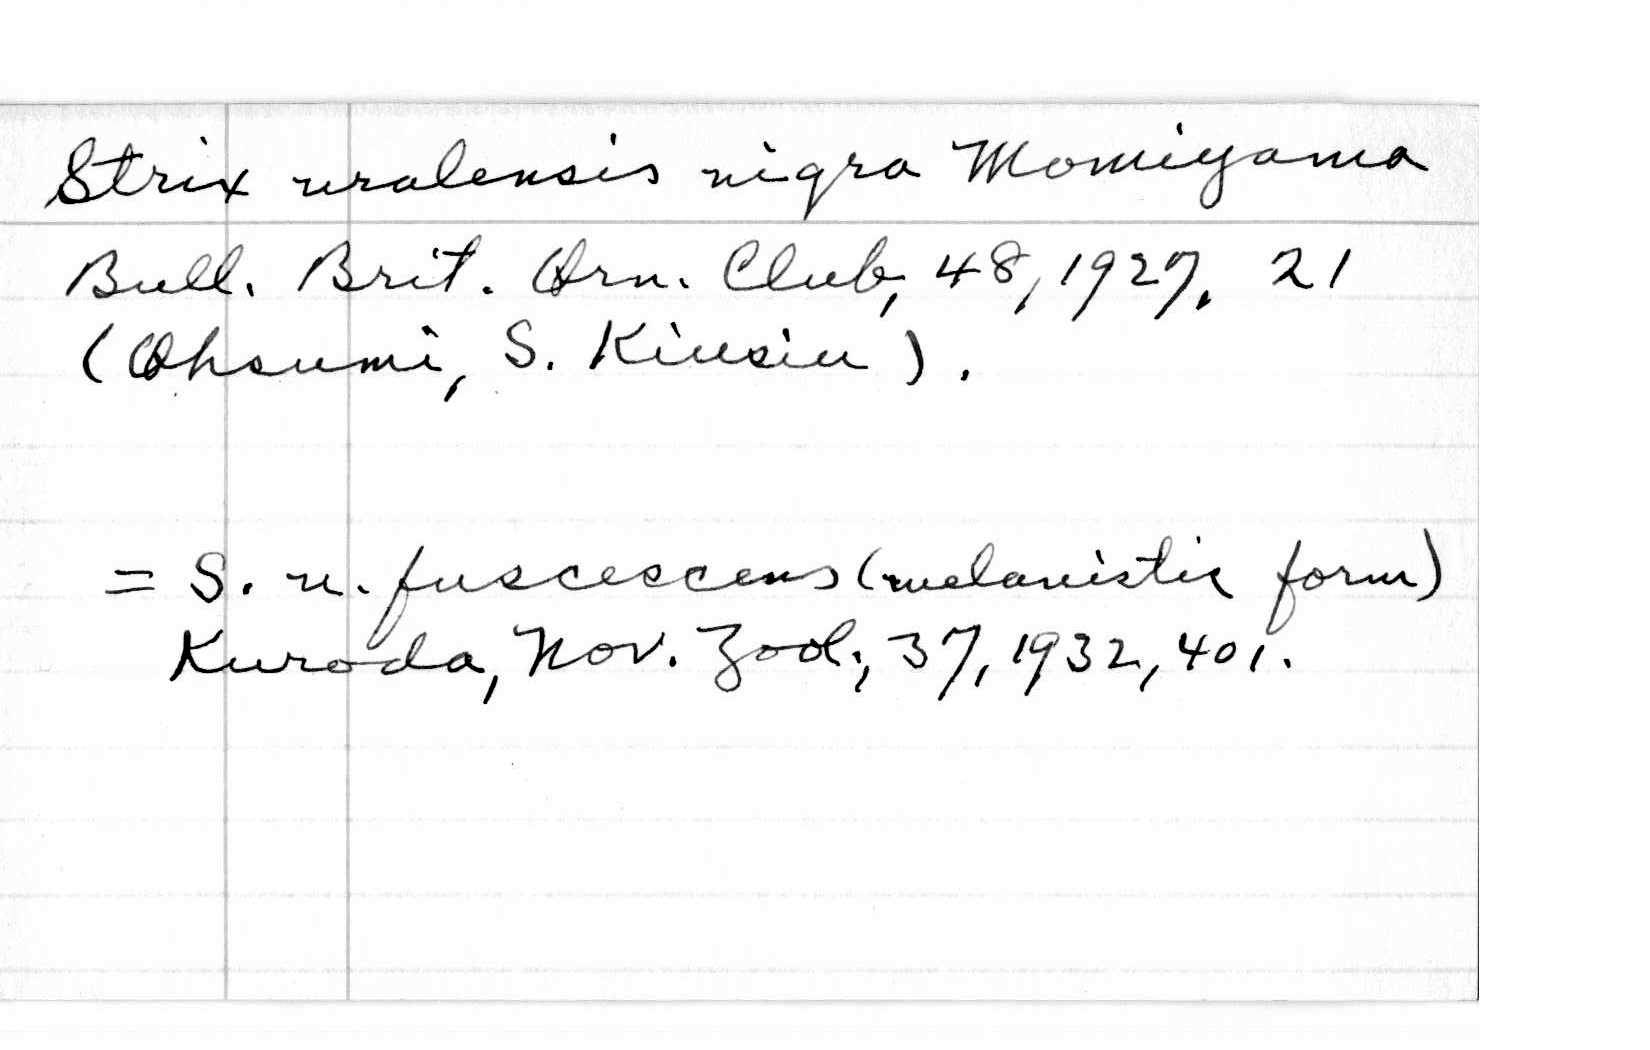 Strix uralensis nigra Momiyama
Bull. Brit. Orn. Club, 48, 1927, 21
(Ohsumi, S. Kiusiu).
= S. u. fuscescens (melanistic form)
Kuroda, Nov. Zool., 37, 1932, 401.